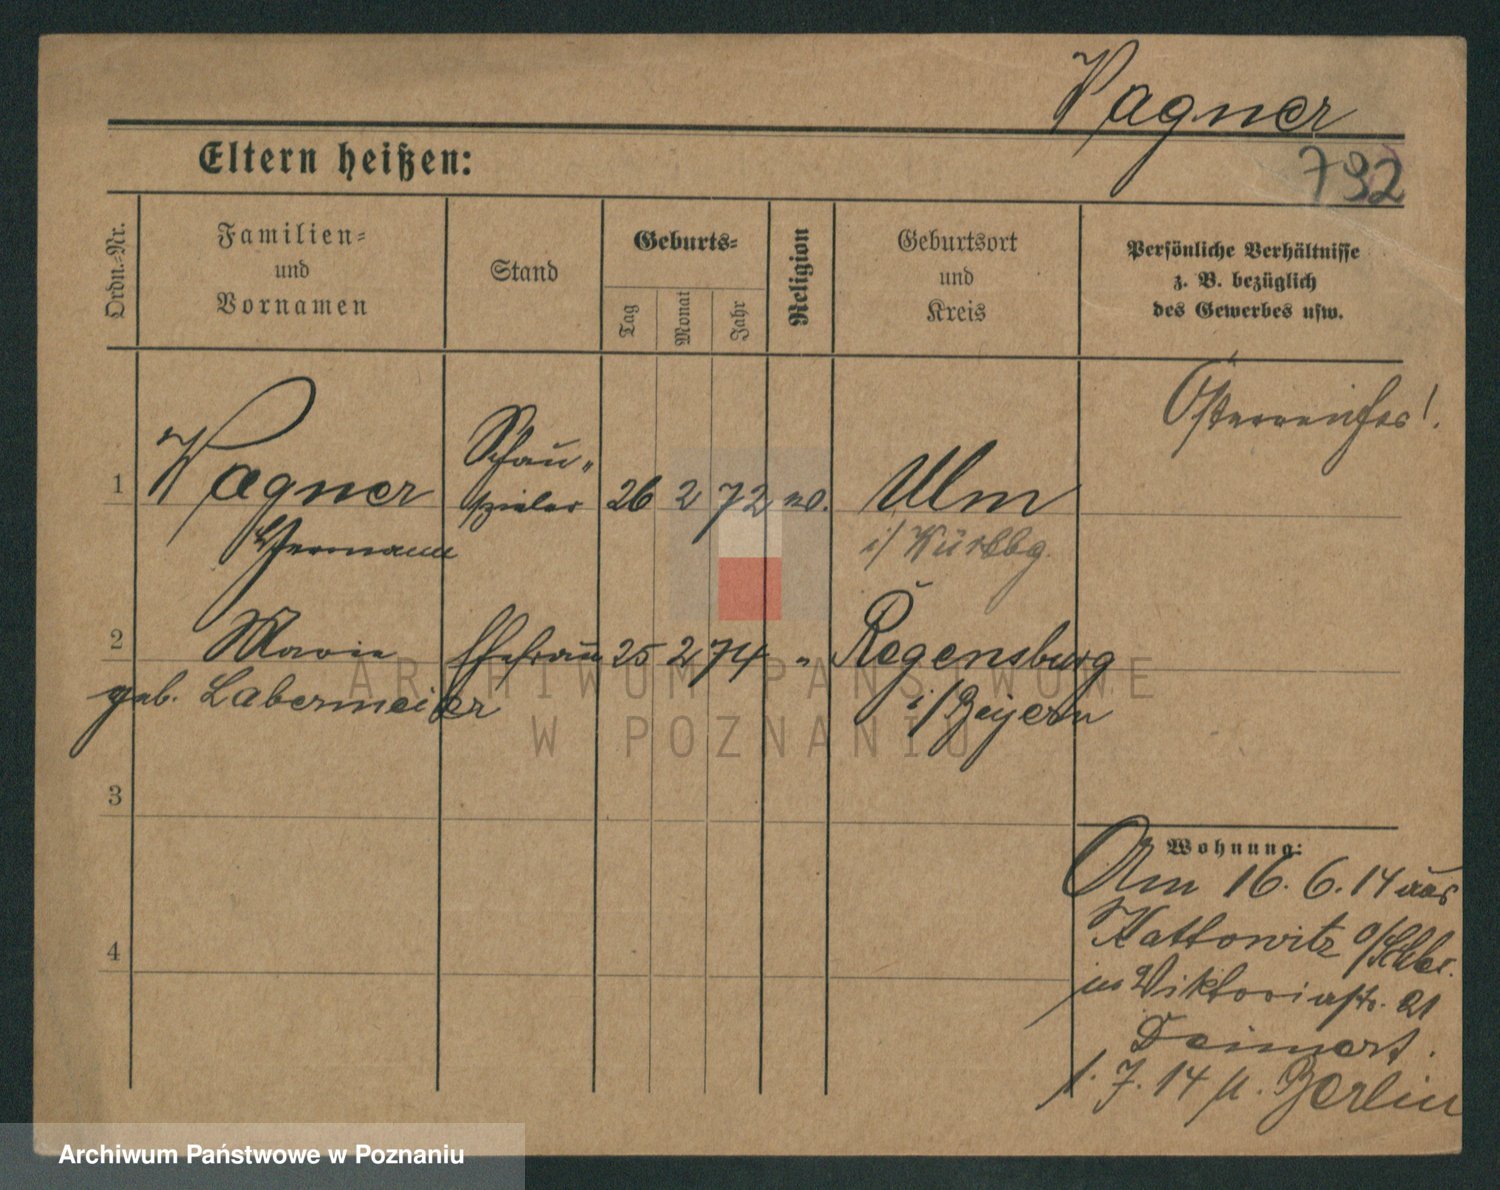 Wagner
792
Eltern heißen:
Ordn.-Nr.
Familien-
und
Vornamen
Stand
Geburts-
Tag
Monat
Jahr
Religion
Geburtsort
und
Kreis
Persönliche Verhältnisse
z. B. bezüglich
des Gewerbes usw.
Österreicher!
1
Wagner
Hermann
Schau-
spieler
26 2 72
Ulm
i/ Würtbg.
2
Marie
geb. Labermeier
Ehefrau
25 2 74 "
Regensburg
i/Bayern
3
4
Wohnung:
Am 16. 6. 14 aus
Kattowitz O/Schles.
in Viktoriastr. 21
1. 7. 14 n. Berlin
ARCHIWUM PAŃSTWOWE
W POZNANIU
Archiwum Państwowe w Poznaniu